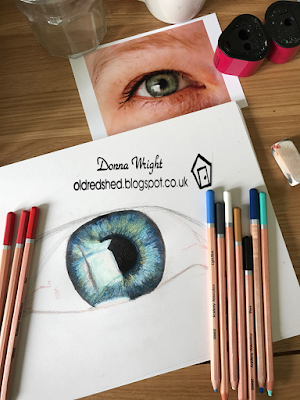 Donna Wright
oldredshed.blogspot.co.uk